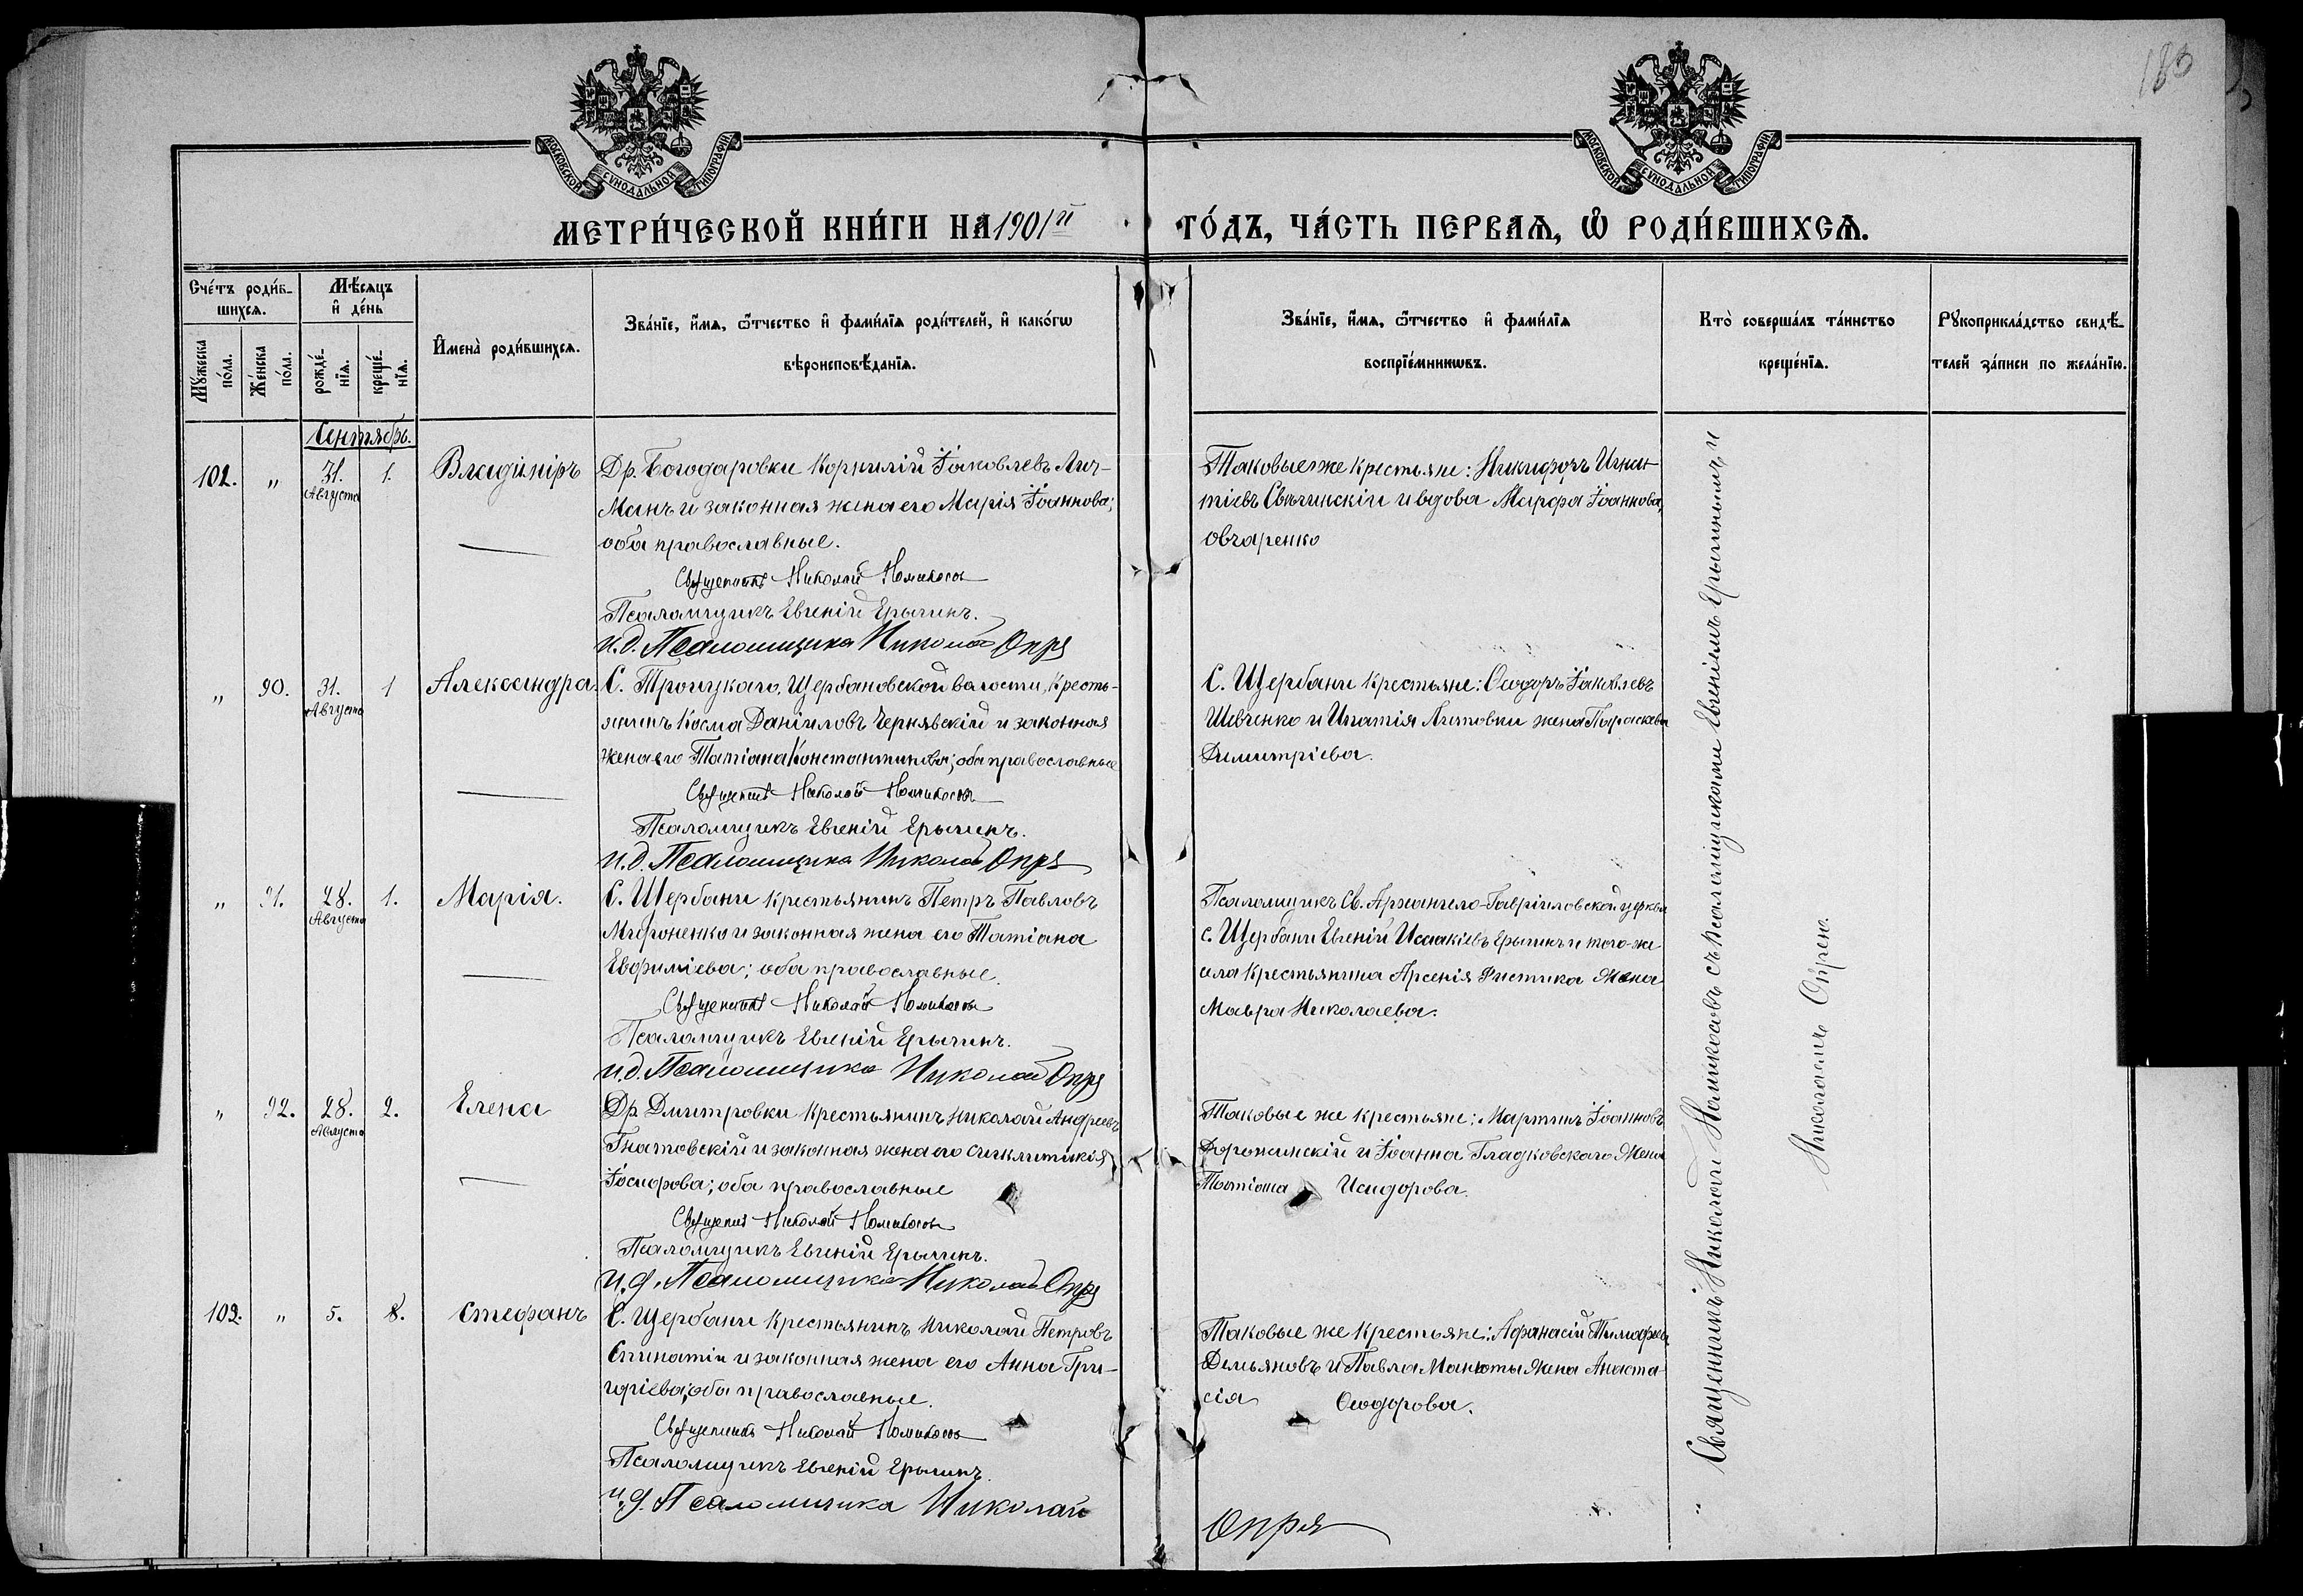 183
МОСКОВСКОЙ СѴНОДАЛЬНОЙ ТИПОГРАФІИ
МОСКОВСКОЙ СѴНОДАЛЬНОЙ ТИПОГРАФІИ
МЕТРИ́ЧЕСКОЙ КНИ́ГИ НА 1901й ГО́ДЪ, ЧА́СТЬ ПЕРВАѦ, Ѡ҆ РОДИ́ВШИХСѦ.
Сче́тъ роди́в-
шихсѧ.
Мꙋ́жеска по́ла.
Же́нска по́ла.
Мѣ́сѧцъ
и҆ де́нь
рожде́-
нїѧ.
креще́-
нїѧ.
И҆мена̀ роди́вшихсѧ.
Зва́нїе, и҆́мѧ, ѻ҆́тчество и҆ фами́лїѧ роди́телей, и҆ како́гѡ
вѣроисповѣ́данїѧ.
Зва́нїе, и҆́мѧ, ѻ҆́тчество и҆ фами́лїѧ
воспрїе́мникѡвъ.
Кто̀ соверша́лъ та́инство
креще́нїѧ.
Рꙋкоприкла́дство свидѣ́-
телей за́писи по жела́нїю.
Сентябрь.
102. " 31. Августа 1. Владиміръ
Др. Богодаровки Корнилій Іаковлевъ Лич-
манъ и законная жена его Марія Іоаннова;
оба православные.
Священникъ Николай Номикосовъ
Псаломщикъ Евгеній Ерычинъ.
и.д. Псаломщика Николай Опря
Таковые же крестьяне: Никифоръ Игна-
тіевъ и вдова Марфа Іоаннова
Овчаренко
" 90. 31. Августа 1 Александра.
С. Троицкаго, Щербановской волости, кресть-
янинъ Косма Даніиловъ Чернявскій и законная
жена его Татіана Константинова; оба православные
Священникъ Николай Номикосовъ
Псаломщикъ Евгеній Ерычинъ.
и.д. Псаломщика Николай Опря
С. Щербани крестьяне: Ѳеодоръ Іаковлевъ
Шевченко и Игнатія жена Параскева
Димитріева.
" 91. 28. Августа 1. Марія.
С. Щербани крестьянинъ Петръ Павловъ
Мироненко и законная жена его Татіана
Евфиміева; оба православные.
Священникъ Николай Номикосовъ
Псаломщикъ Евгеній Ерычинъ.
и.д. Псаломщика Николай Опря
Псаломщикъ Св. Архангело-Гавріиловской церкви
с. Щербани Евгеній Исаакіевъ Ерычинъ и того-же
села крестьянина Арсенія жена
Мавра Николаева.
" 92. 28. Августа 2. Елена
Др. Дмитровки крестьянинъ Николай Андреевъ
Гнатовскій и законная жена его Синклитикія
оба православные
Священникъ Николай Номикосовъ
Псаломщикъ Евгеній Ерычинъ.
и.д. Псаломщика Николай Опря
Таковые же крестьяне: Мартинъ Іоанновъ
и Іоанна Гладковскаго жена
Татіана Исидорова.
103. " 5. 8. Стефанъ
С. Щербани крестьянинъ Николай Петровъ
и законная жена его Анна Гри-
горіева; оба православные.
Священникъ Николай Номикосовъ
Псаломщикъ Евгеній Ерычинъ.
и.д. Псаломщика Николай
Опря
Таковые же крестьяне: Афанасій Тимофеевъ
Демьяновъ и Павла жена Анаста-
сія Ѳеодорова.
Священникъ Николай Номикосовъ съ псаломщиками Евгеніемъ Ерычинымъ и
Николаемъ Опрею.